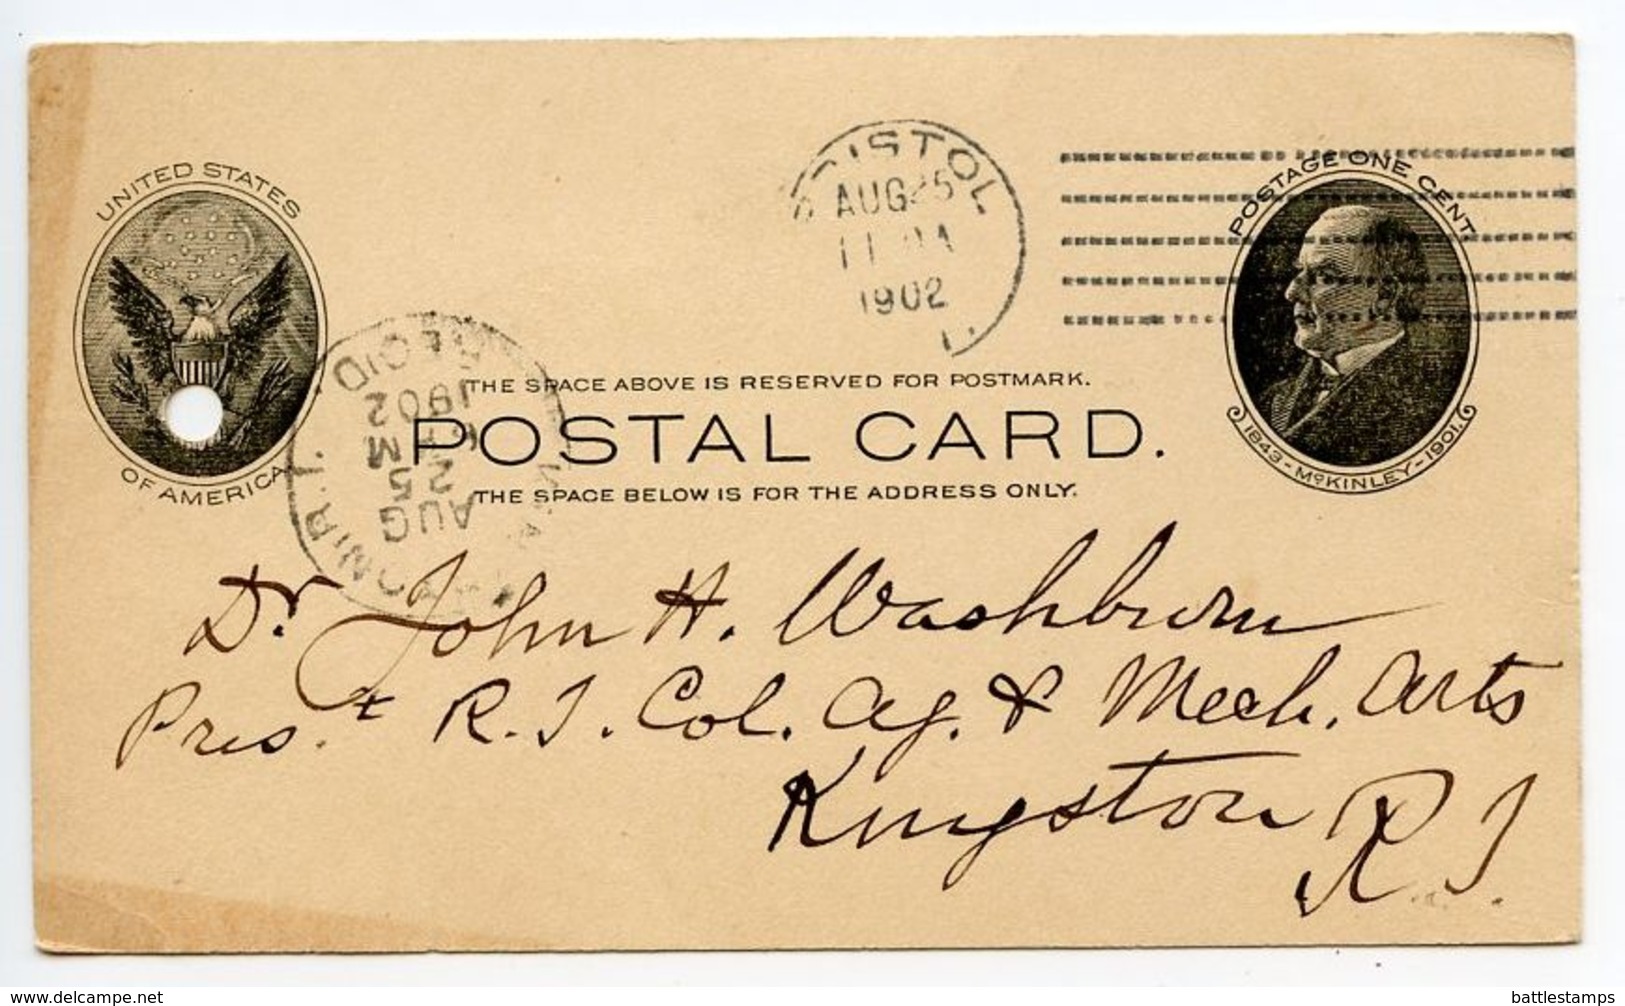 UNITED STATES
OF AMERICA
BRISTOL
AUG 25
11
1902
POSTAGE ONE CENT
1843-McKINLEY-1901.
REC'D
1902
M
AUG
25
R.I.
THE SPACE ABOVE IS RESERVED FOR POSTMARK.
POSTAL CARD.
THE SPACE BELOW IS FOR THE ADDRESS ONLY.
Dr. John H. Washburn
Pres.t R. I. Col. Ag. & Mech. Arts
Kingston
R. I.
delcampe.net
battlestamps